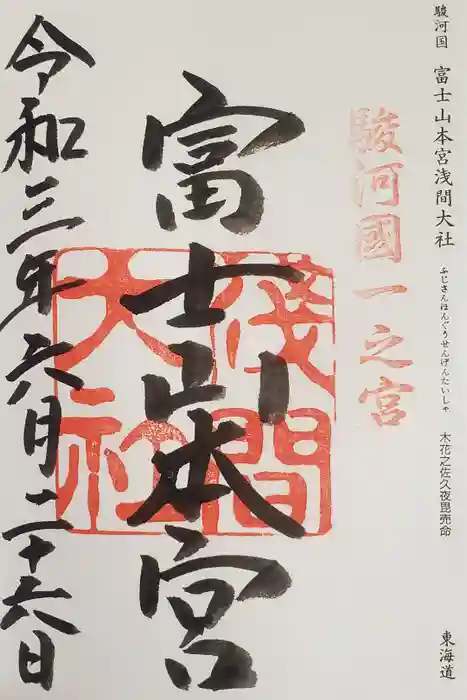 駿河国 富士山本宮浅間大社 ふじさんほんぐうせんげんたいしゃ 木花之佐久夜毘売命 東海道
駿河國一之宮
富士山本宮
浅間大社
令和三年六月二十六日